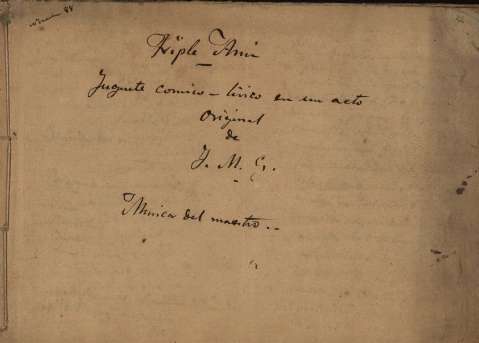 Triple Ami
Juguete comico-lirico en un acto
Original
de
J. M. G.
Musica del maestro..